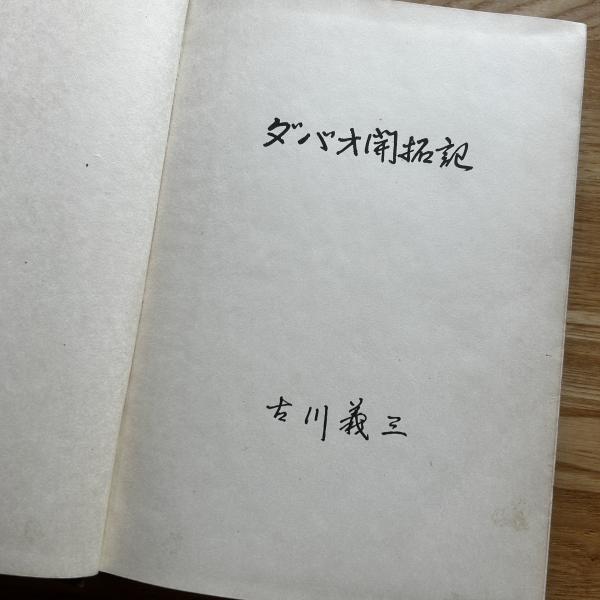 ダバオ開拓記
古川義三